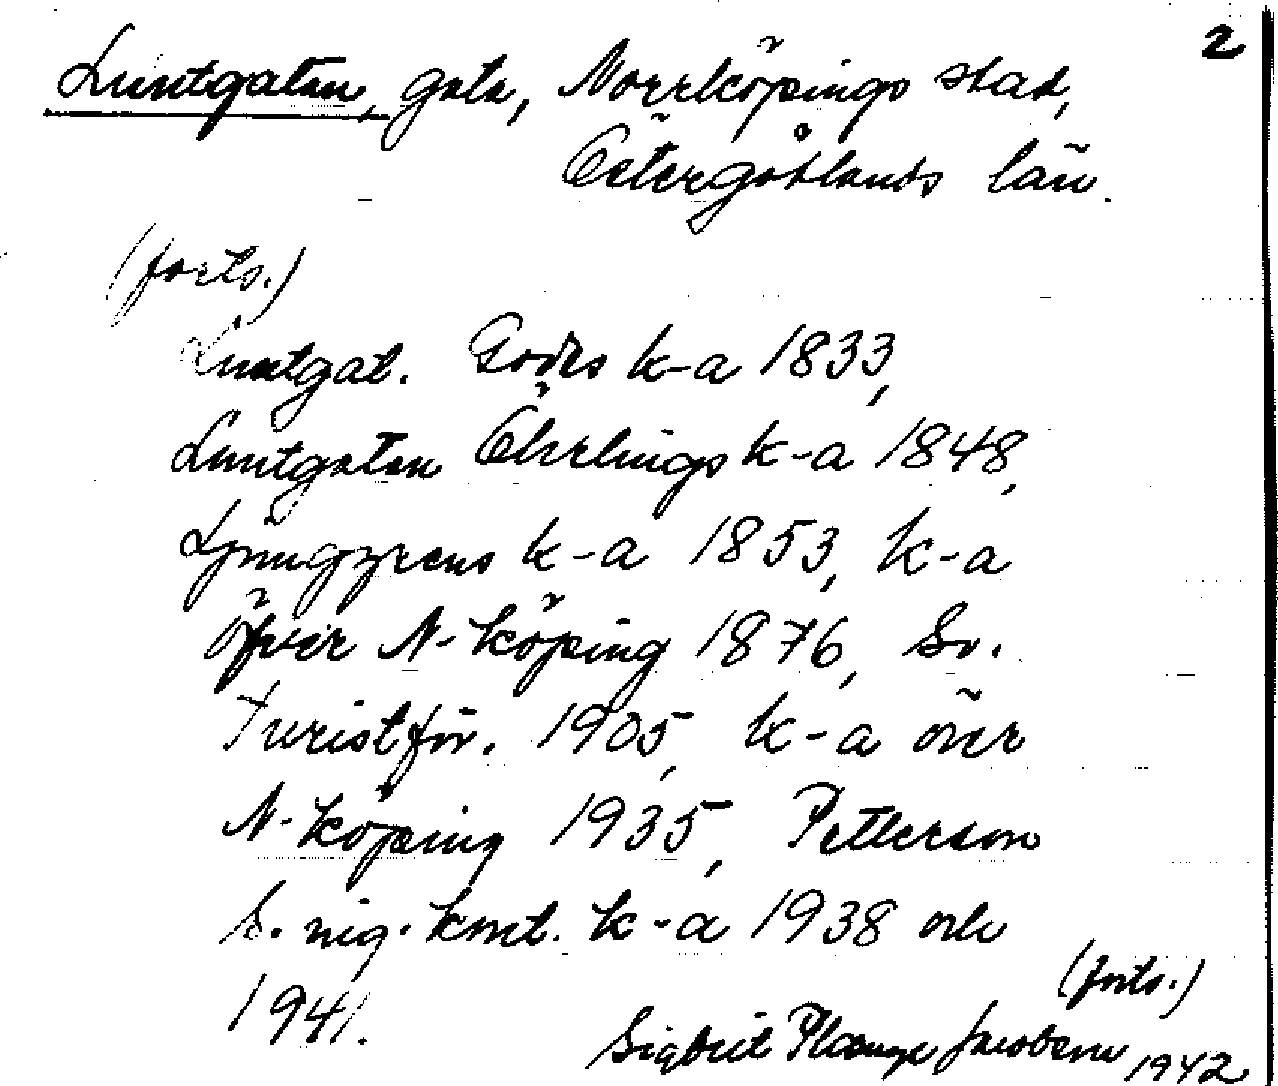 2
Luntgatan, gata, Norrköpings stad,
Östergötlands län.
(forts.)
Luntgat. Godes k-a 1833,
Luntgatan Öhrlings k-a 1848,
Ljunggrens k-a 1853, k-a
öfver N-köping 1876, Sv.
Turistför. 1905, k-a över
N-köping 1935, Petterson
s. 1938 och
1941.
(forts.)
Sigbrit Plænge Jacobson 1942